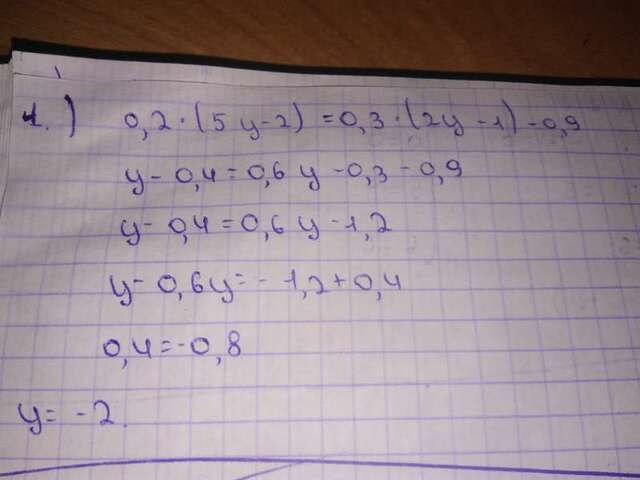 1.) 0,2·(5y-2)=0,3·(2y-1)-0,9
y-0,4=0,6y-0,3-0,9
y-0,4=0,6y-1,2
y-0,6y=-1,2+0,4
0,4=-0,8
y=-2.